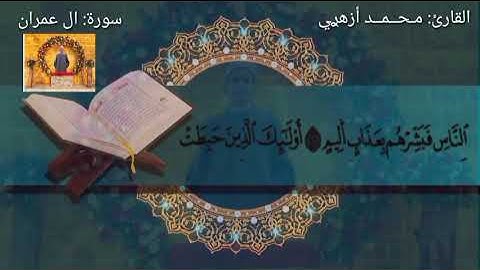 القارئ: محمد أزهري
سورة: ال عمران
اَلنَّاسِ فَبَشِّرْهُم بِعَذَابٍ أَلِيمٍ أُوْلَٰٓئِكَ اَلذِينَ حَبِطَتَ